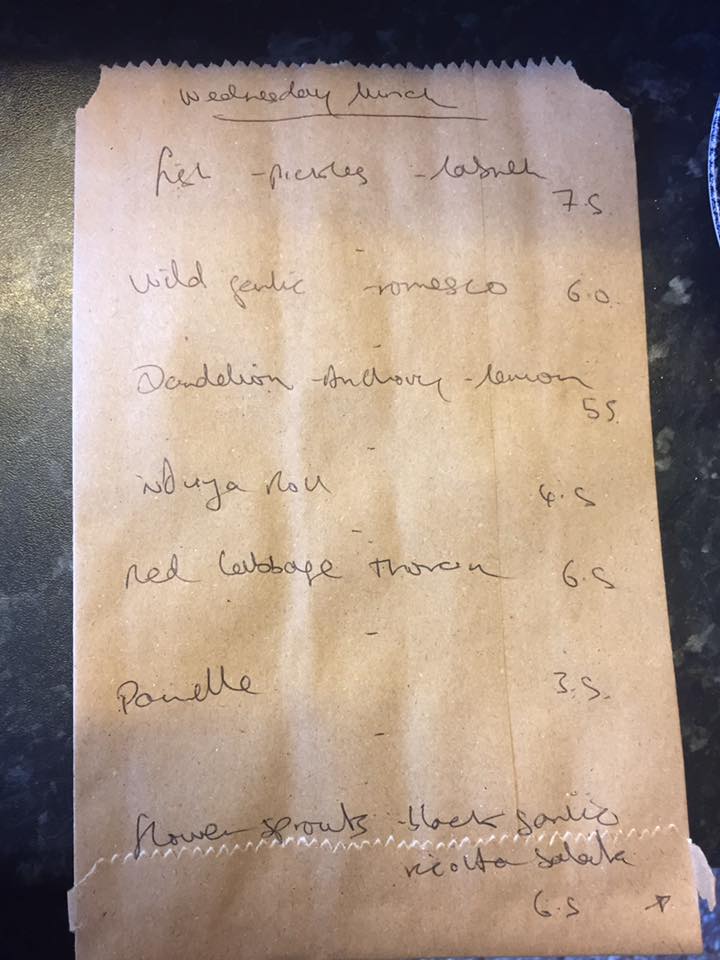 Wednesday lunch
fish - pickles - labneh
7.5
wild garlic - romesco 6.0
Dandelion - Anchovy - lemon
5.5
nduja roll 4.5
red cabbage thoran 6.5
Panelle 3.5
flower sprouts - black garlic
ricotta salata
6.5